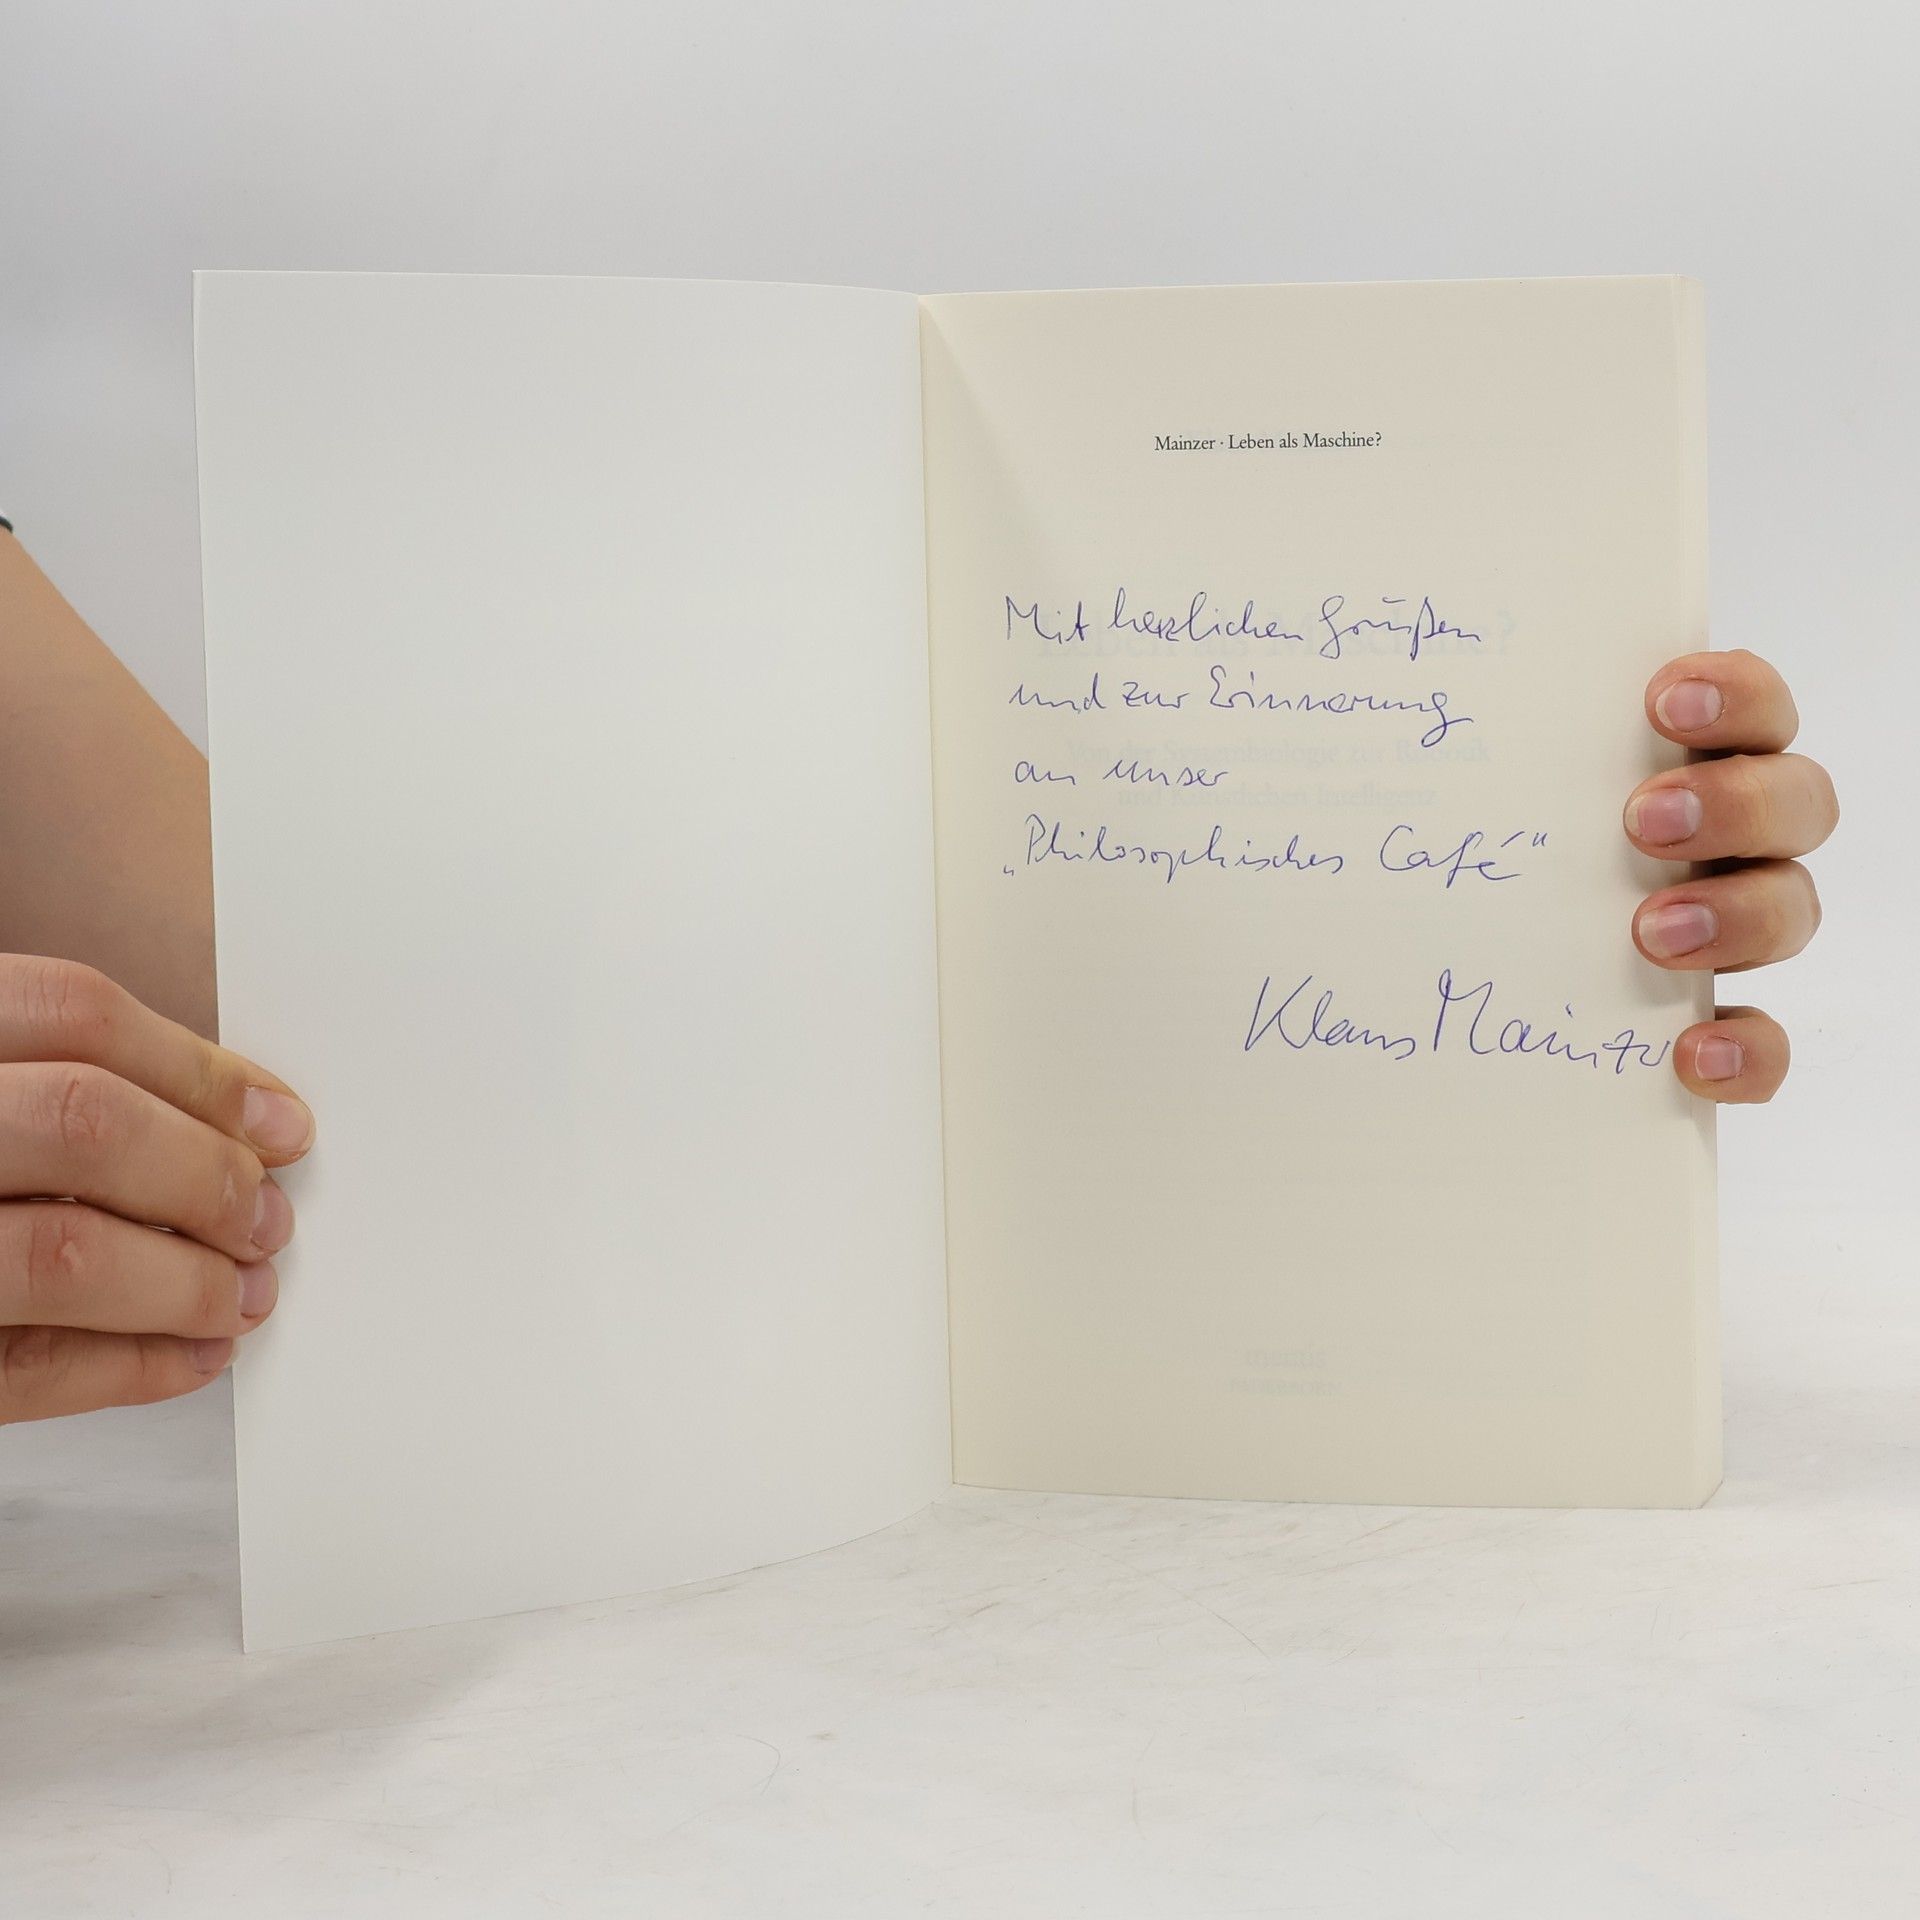 Mainzer · Leben als Maschine?
Mit herzlichen Grüßen
und zur Erinnerung
an unser
„Philosophisches Café“
Klaus Mainzer
Leben als Maschine?
Von der Systembiologie zur Robotik
und Künstlichen Intelligenz
mentis
PADERBORN